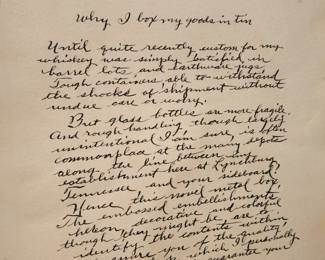 Why I box my goods in tin
Until quite recently custom for my
whiskey was simply satisfied in
barrel lots and earthware jugs
Tough containers able to withstand
the shocks of shipment without
undue care or worry.
But glass bottles are more fragile
And rough handling though largely
unintentional I am sure, is often
commonplace at the many depots
along the line between my
establishment here at Lynchburg
Tennessee, and your sideboard.
Hence, this novel metal box.
The embossed embellishments
hereon, decorative and colorful
though they might be, are to
identify the contents within
assure you of the quality
which I personally
guarantee your